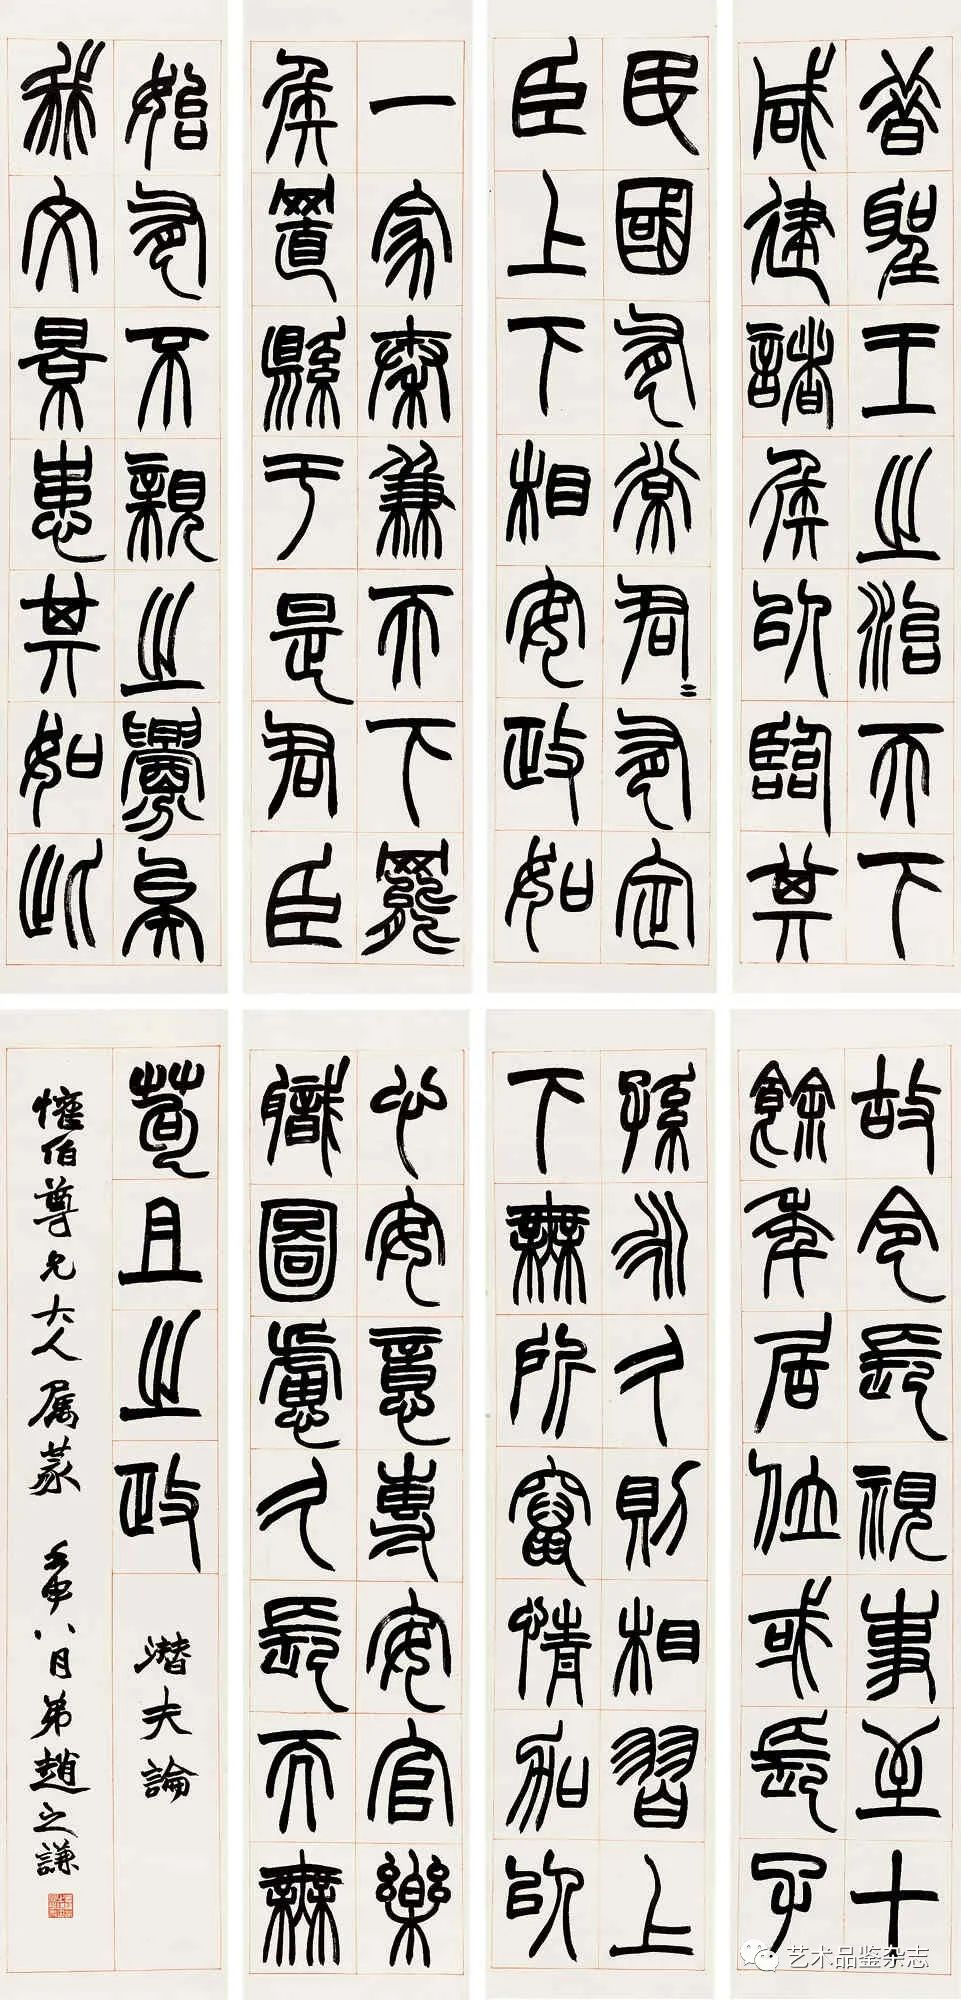 昔聖王之治天下
咸建諸侯以臨其
民國有常君=有定
臣上下相安政如
一家秦兼天下罷
侯置縣于是君臣
始有不親之釁矣
我文景患其如此
故令長視事至十
餘年居位或長子
孫永久則相習上
下無所竄情加以
心安意專安官樂
職圖慮久長而無
苟且之政 潛夫論
伯尊兄大人屬篆 壬申八月弟趙之謙
艺术品鉴杂志